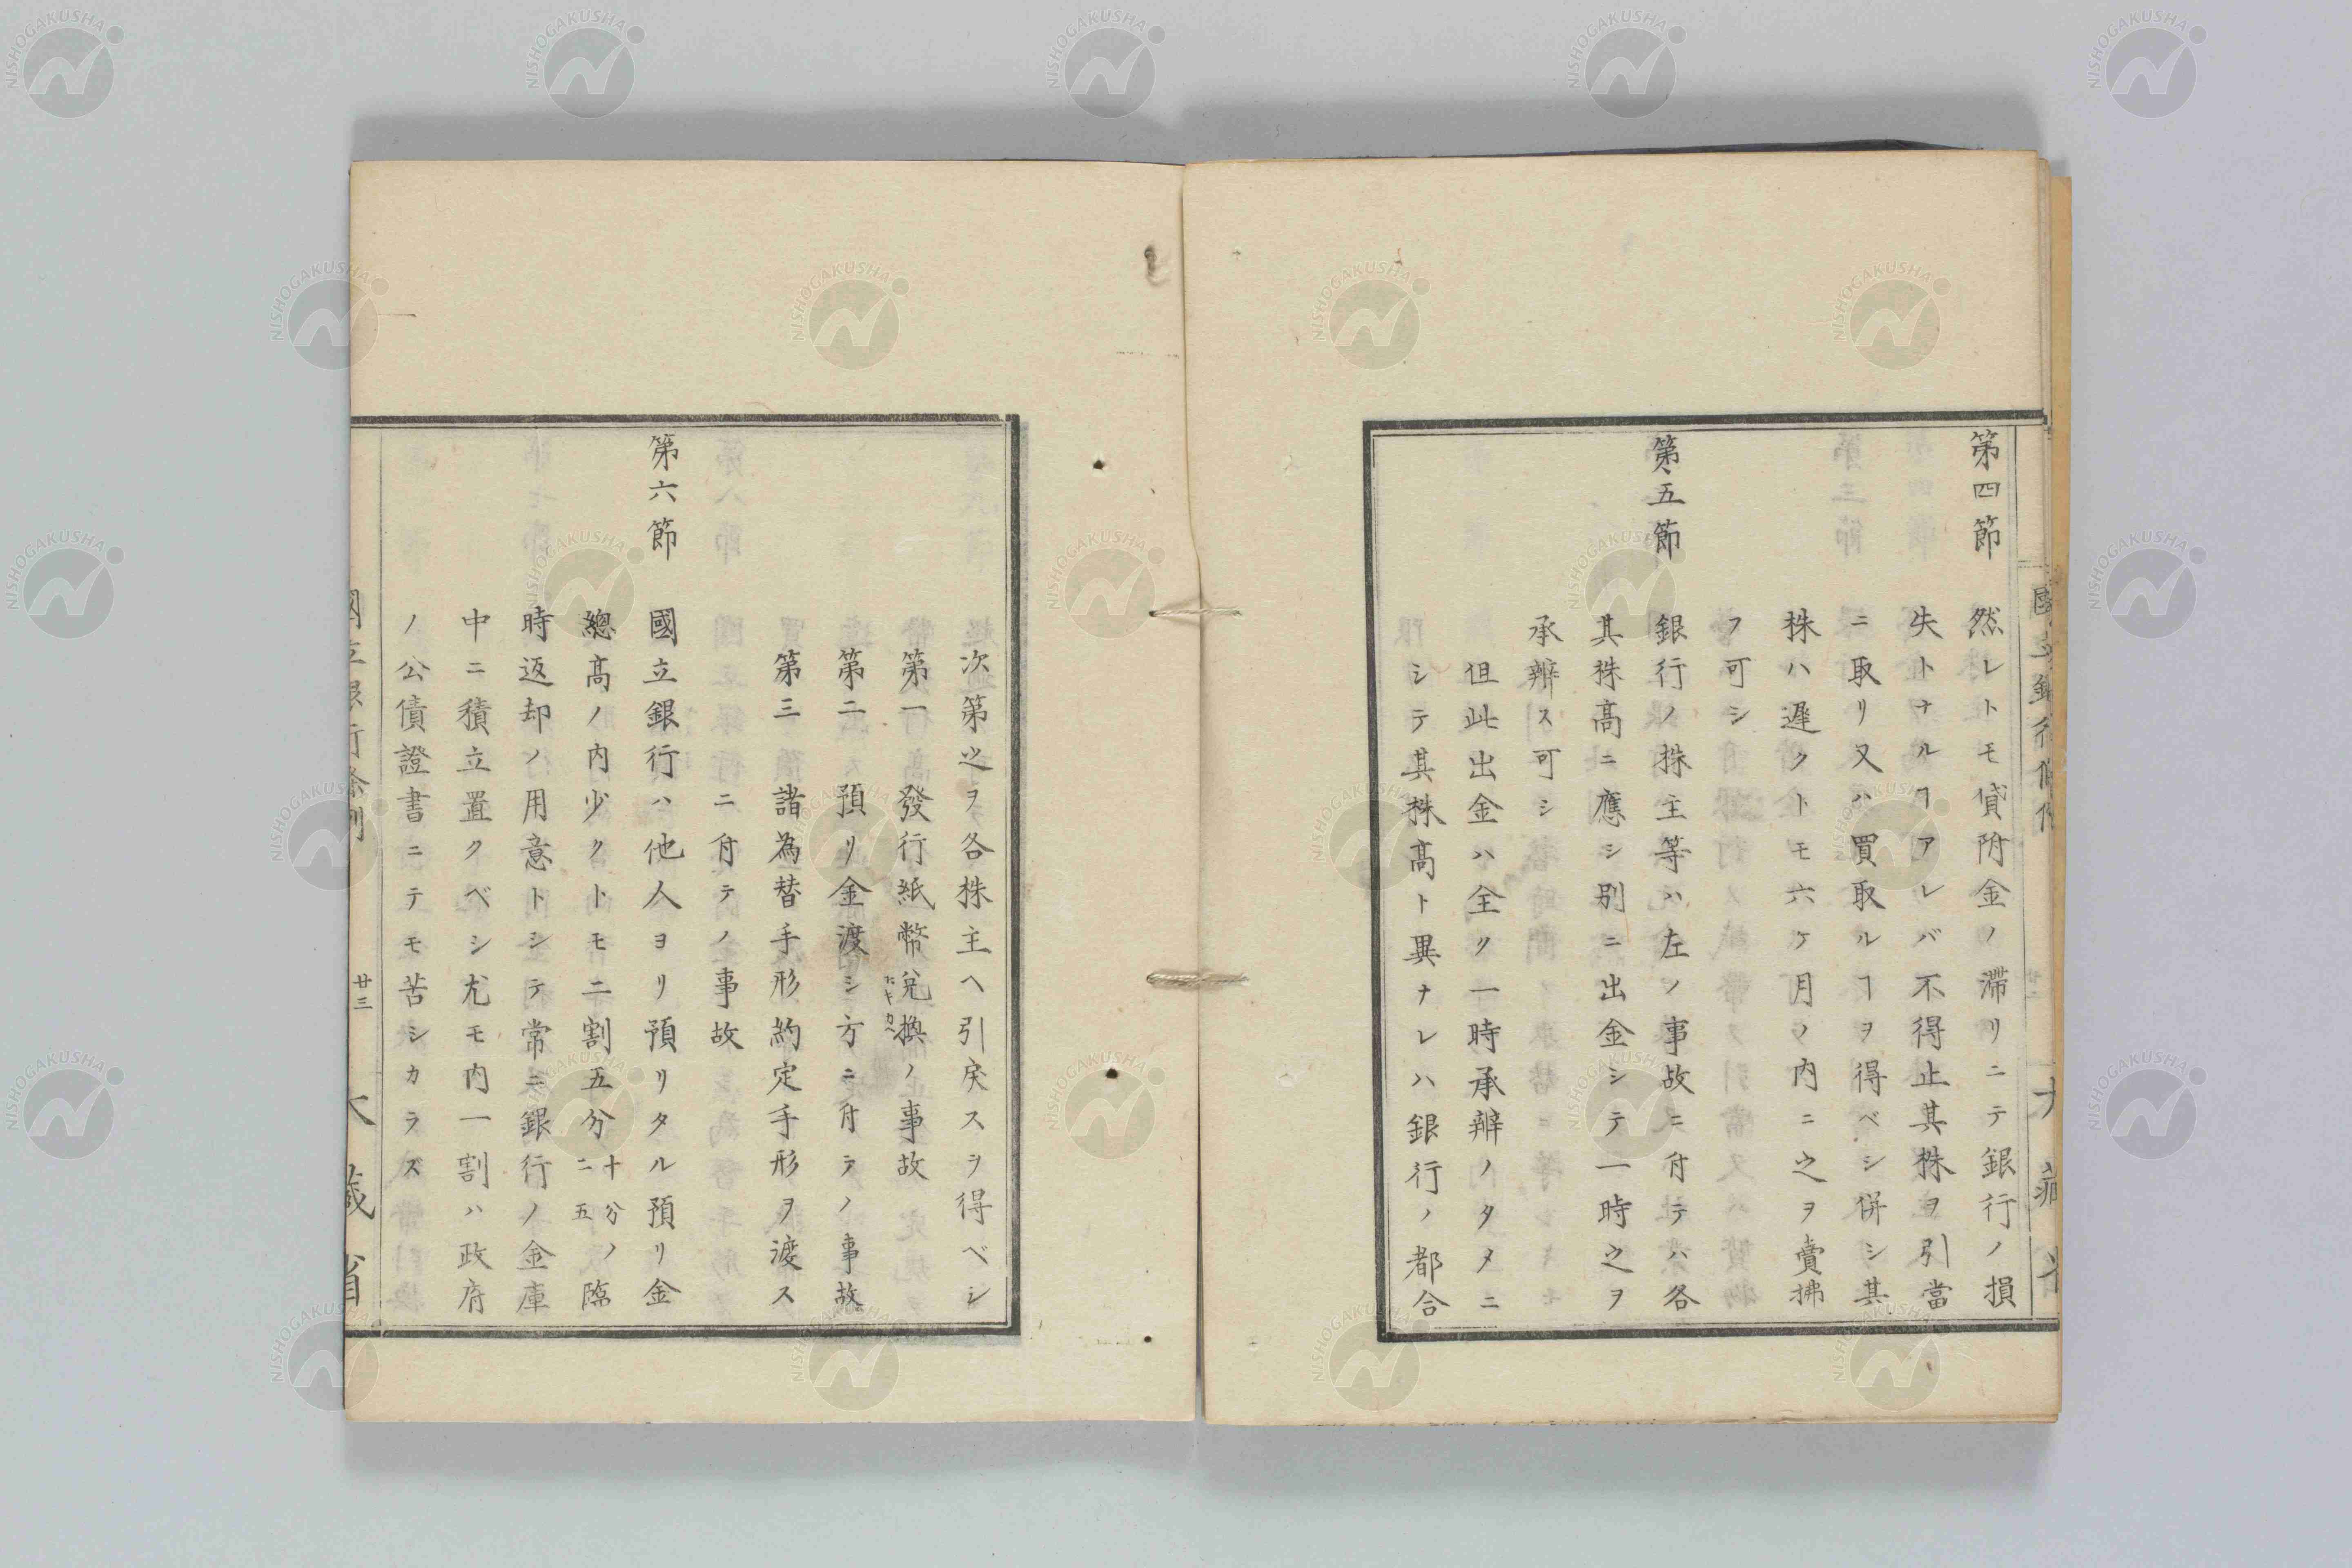 第四節
然レトモ貸附金ノ滞リニテ銀行ノ損
失トナルヿアレバ不得止其株ヲ引當
ニ取リ又ハ買取ルヿヲ得ベシ併シ其
株ハ遅クトモ六ケ月ノ内ニ之ヲ賣拂
フ可シ
第五節
銀行ノ株主等ハ左ノ事故ニ付テハ各
其株高ニ應シ別ニ出金シテ一時之ヲ
承辨ス可シ
但此出金ハ全ク一時承辨ノタメニ
シテ其株高ト異ナレハ銀行ノ都合
次第之ヲ各株主ヘ引戻スヲ得ベシ
第一 發行紙幣兌換ノ事故
第二 預リ金渡シ方ニ付テノ事故
第三 諸為替手形約定手形ヲ渡ス
ニ付テノ事故
第六節
國立銀行ハ他人ヨリ預リタル預リ金
總高ノ内少クトモ二割五分十分ノ二五臨
時返却ノ用意トシテ常ニ銀行ノ金庫
中ニ積立置クベシ尤モ内一割ハ政府
ノ公債證書ニテモ苦シカラズ
國立銀行條例
廿三
大藏省
NISHOGAKUSHA